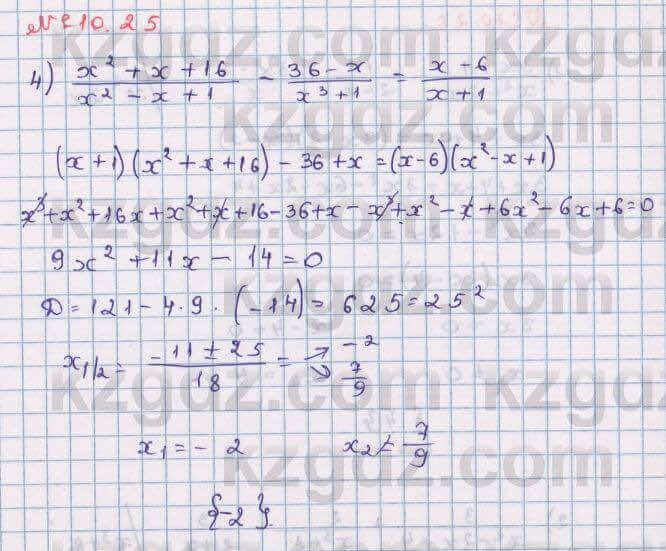 № 210.25
4) (x² + x + 16)/(x² - x + 1) - (36 - x)/(x³ + 1) = (x - 6)/(x + 1)
(x+1)(x² + x + 16) - 36 + x = (x-6)(x² - x + 1)
x³ + x² + 16x + x² + x + 16 - 36 + x - x³ + x² - x + 6x² - 6x + 6 = 0
9x² + 11x - 14 = 0
D = 121 - 4·9·(-14) = 625 = 25²
x₁/₂ = (-11 ± 25)/18 = → -2
7/9
x₁ = -2 x₂ ≠ 7/9
{-2}
kzgdz.com